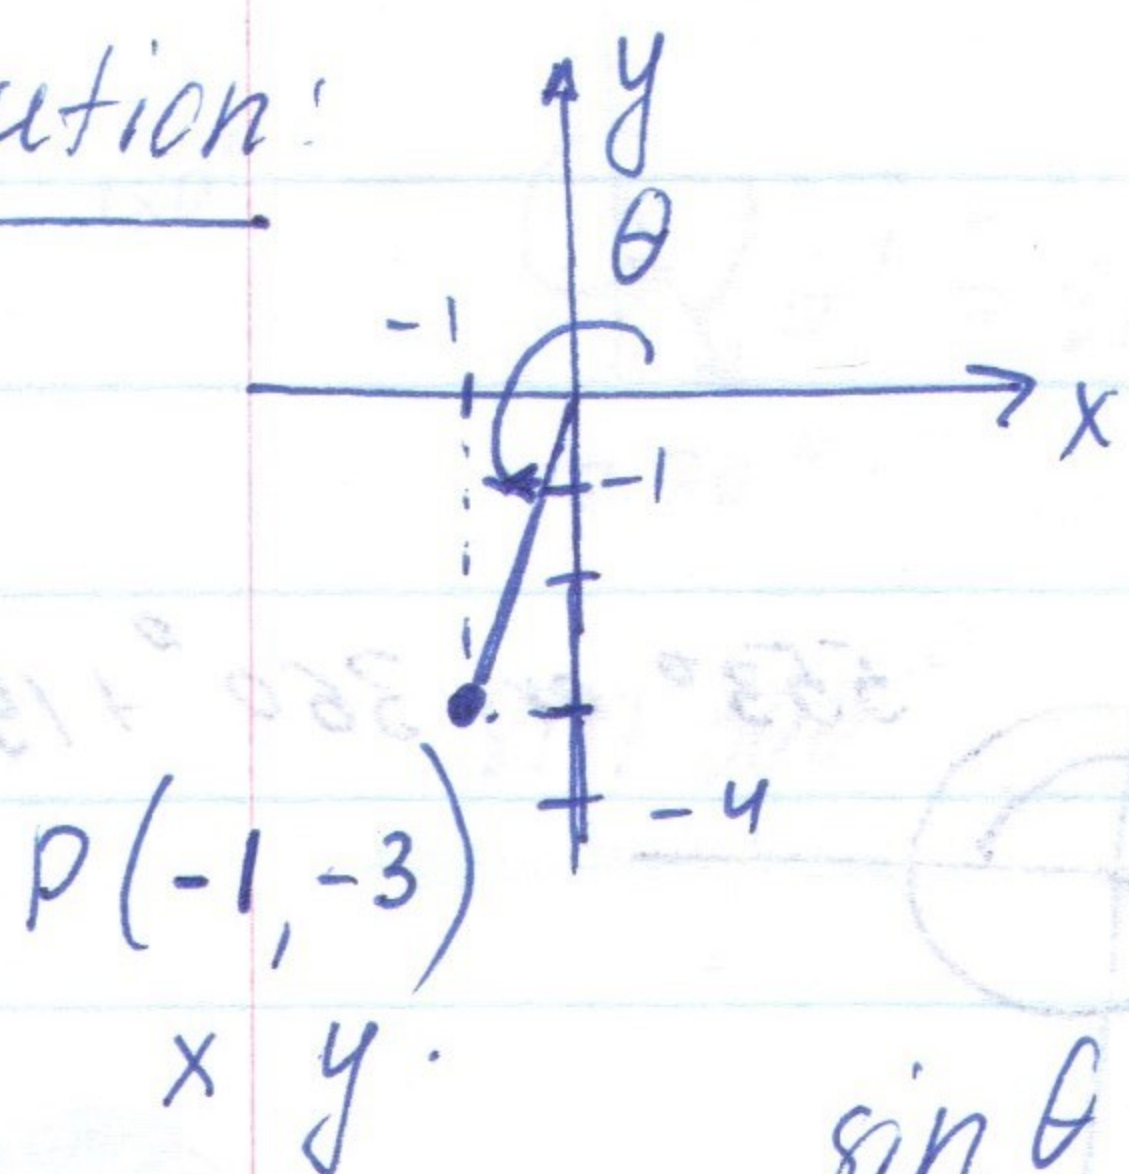 ution:
y
θ
-1
x
-1
-4
P(-1, -3)
x y.
sin θ